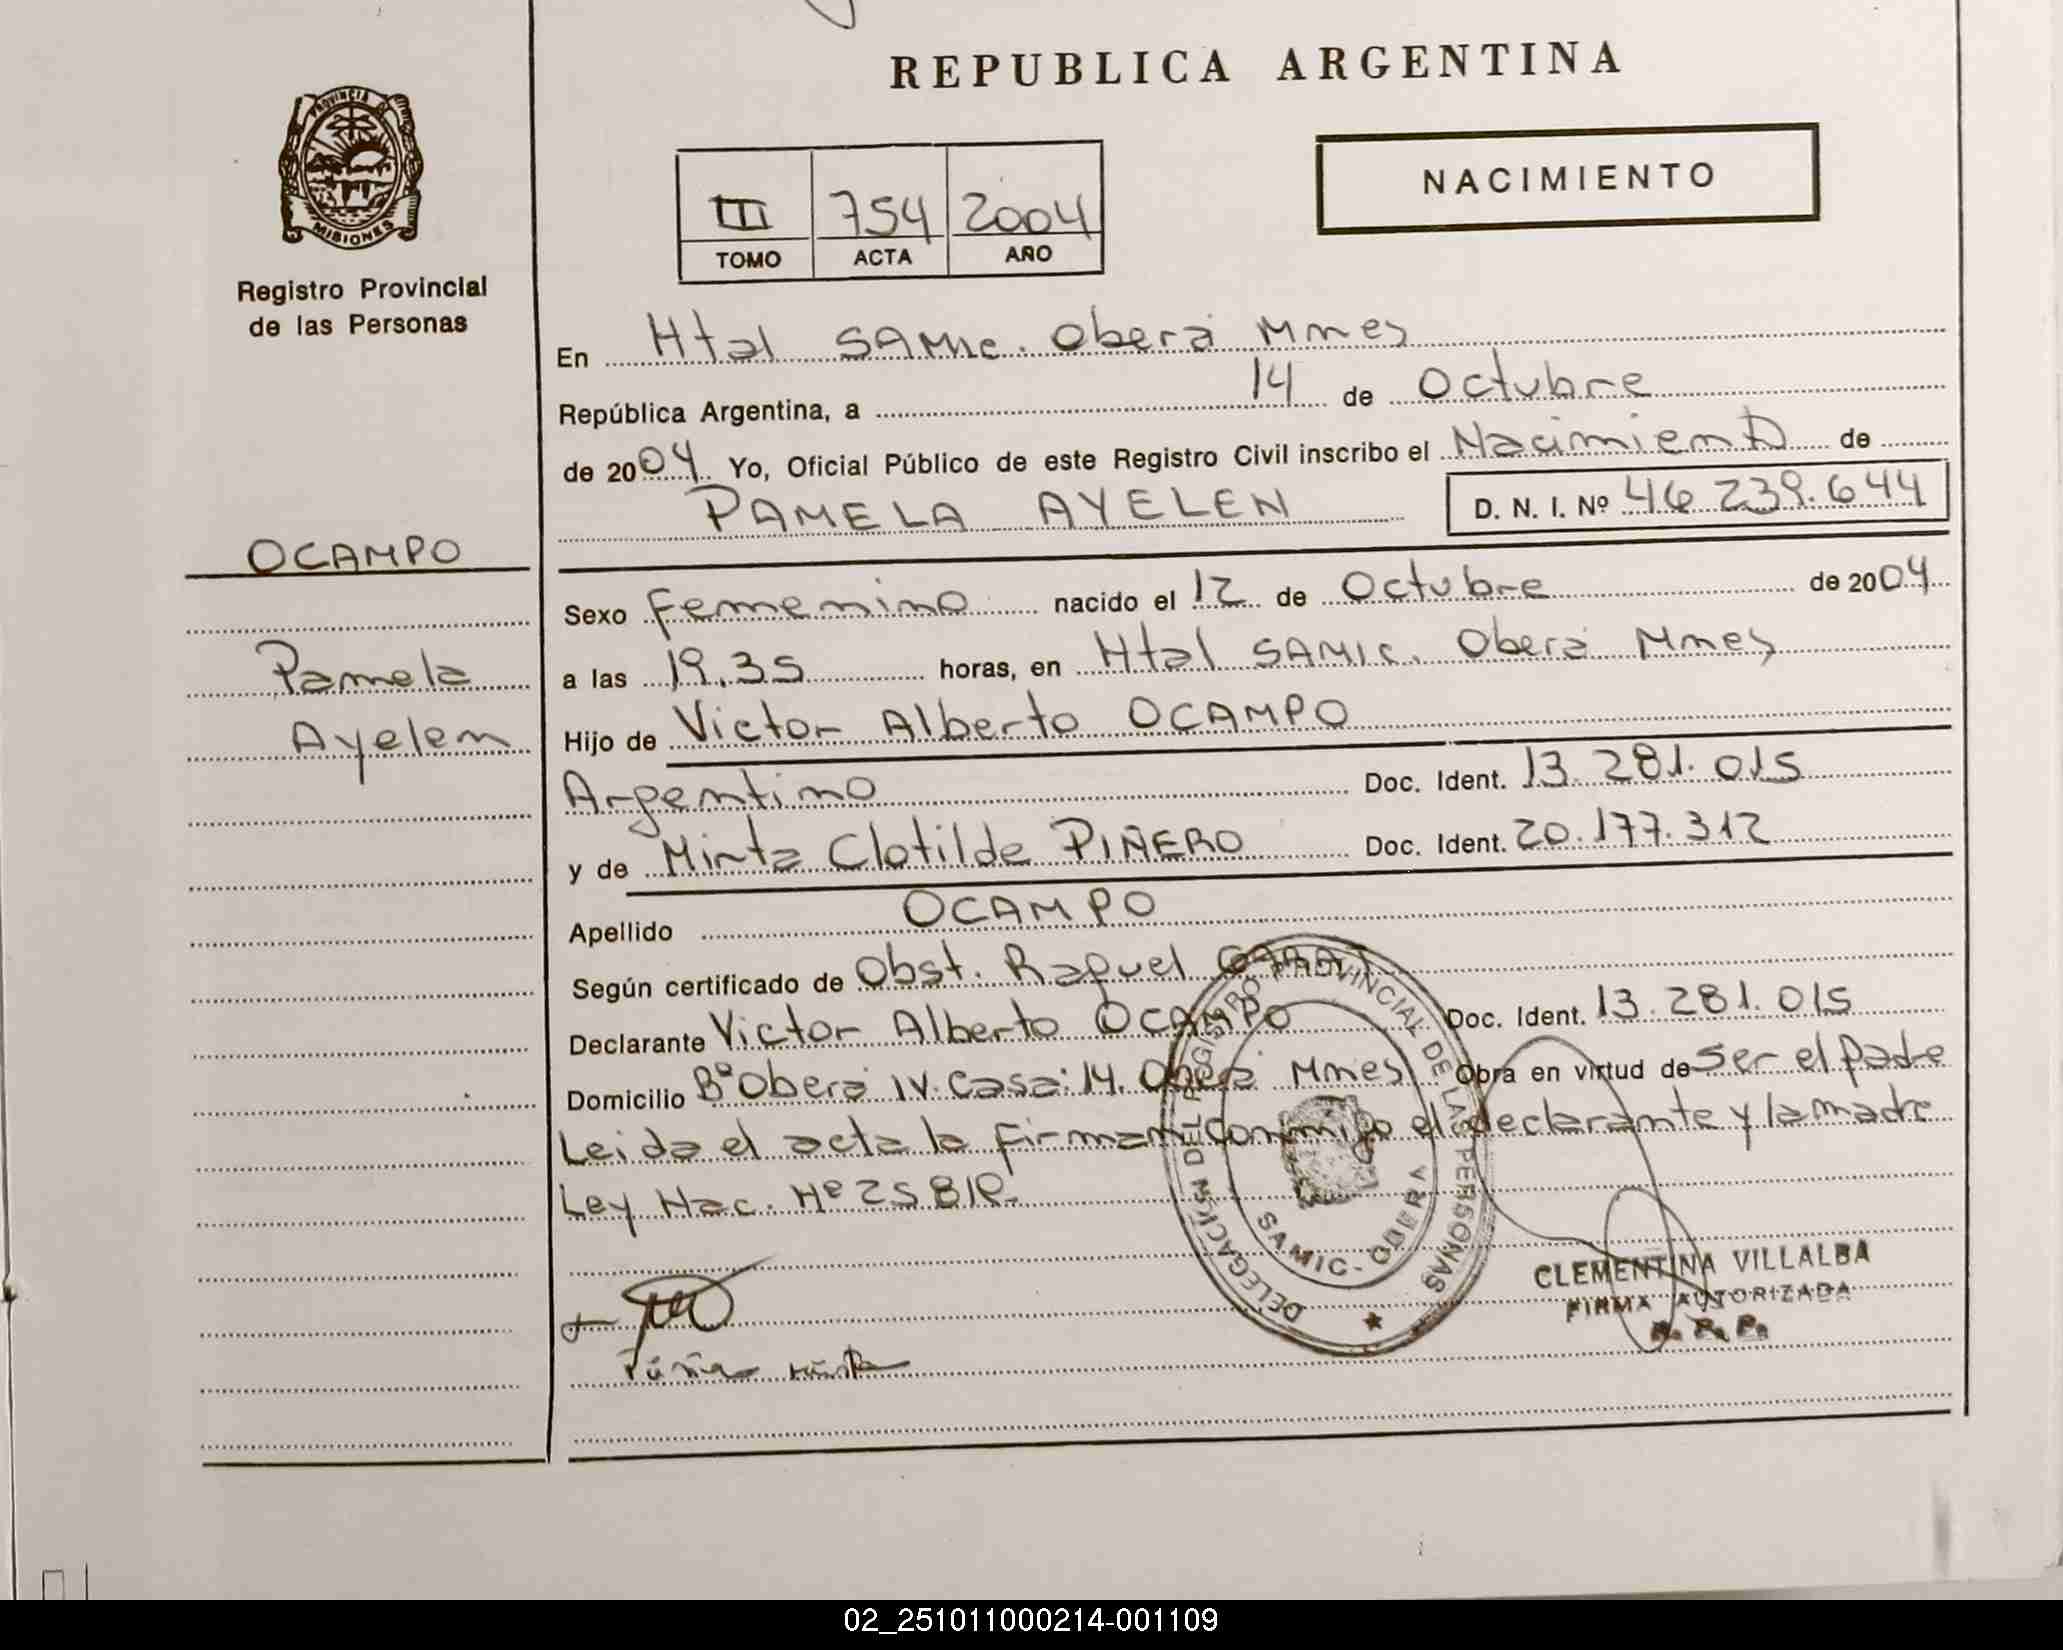 REPUBLICA ARGENTINA
PROVINCIA DE
MISIONES
Registro Provincial
de las Personas
III 754 2004
TOMO ACTA AÑO
NACIMIENTO
En Htal SAMIC. Oberá Mnes
República Argentina, a 14 de Octubre
de 2004 Yo, Oficial Público de este Registro Civil inscribo el Nacimiento de
PAMELA AYELEN D. N. I. Nº 46 239.644
OCAMPO
Pamela
Ayelen
Sexo Femenino nacido el 12 de Octubre de 2004
a las 19.35 horas, en Htal SAMIC. Oberá Mnes
Hijo de Victor Alberto OCAMPO
Argentino Doc. Ident. 13.281.015
y de Mirta Clotilde PIÑERO Doc. Ident. 20.177.312
Apellido OCAMPO
Según certificado de Obst. Raquel
Declarante Victor Alberto OCAMPO Doc. Ident. 13.281.015
Domicilio Bº Oberá IV. Casa: 14. Oberá Mnes Obra en virtud de ser el padre
Leida el acta la firman conmigo el declarante y la madre
Ley Nac. Nº 25.819.
DELEGACION DEL REGISTRO PROVINCIAL DE LAS PERSONAS
SAMIC - OBERA
CLEMENTINA VILLALBA
FIRMA AUTORIZADA
R. P. P.
02_251011000214-001109